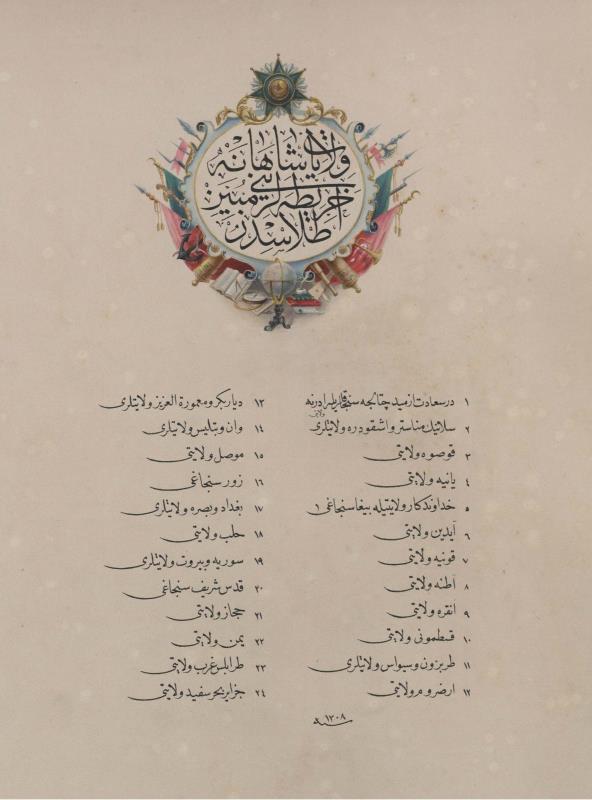 ولایات شاهانه
خریطه لرینی مبین
اطلاسدر
١ درسعادت ازمید چتالجه سنجاقلریله ادرنه ولایتی
٢ سلانیك مناستر و اشقودره ولایتلری
٣ قوصوه ولایتی
٤ یانیه ولایتی
٥ خداوندکار ولایتیله بیغا سنجاغی
٦ آیدین ولایتی
٧ قونیه ولایتی
٨ اطنه ولایتی
٩ انقره ولایتی
١٠ قسطمونی ولایتی
١١ طربزون و سیواس ولایتلری
١٢ ارضروم ولایتی
١٣ دیاربکر و معمورة العزیز ولایتلری
١٤ وان و بتلیس ولایتلری
١٥ موصل ولایتی
١٦ زور سنجاغی
١٧ بغداد و بصره ولایتلری
١٨ حلب ولایتی
١٩ سوریه و بیروت ولایتلری
٢٠ قدس شریف سنجاغی
٢١ حجاز ولایتی
٢٢ یمن ولایتی
٢٣ طرابلس غرب ولایتی
٢٤ جزایر بحر سفید ولایتی
سنه ١٣٠٨